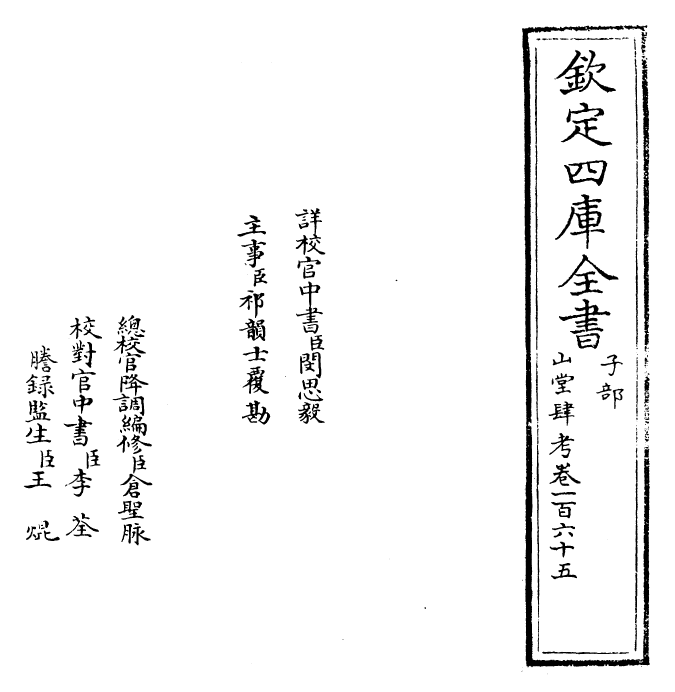 欽定四庫全書
子部
山堂肆考卷一百六十五
詳校官中書臣閔思毅
主事臣祁韻士覆勘
總校官降調編修臣倉聖脉
校對官中書臣李荃
謄錄監生臣王焜